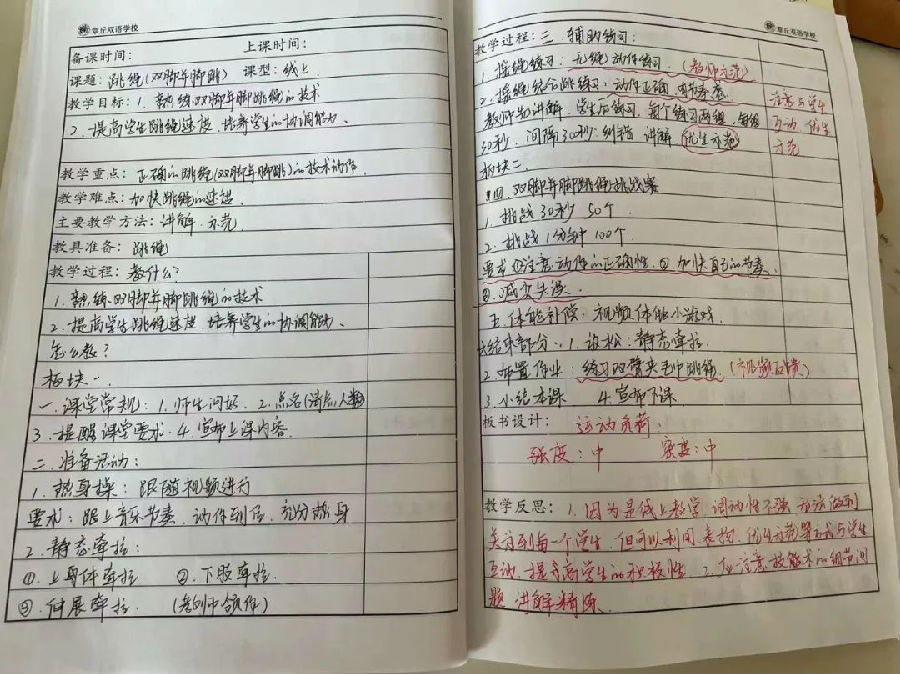 章丘双语学校
备课时间： 上课时间：
课题：跳绳(双脚并脚跳) 课型：线上
教学目标：1.熟练双脚并脚跳绳的技术
2.提高学生跳绳速度、培养学生的协调能力、
教学重点：正确的跳绳(双脚并脚跳)的技术动作
教学难点：加快跳绳的速度
主要教学方法：讲解.示范
教具准备：跳绳
教学过程：教什么？
1.熟练双脚并脚跳绳的技术
2.提高学生跳绳速度 培养学生的协调能力、
怎么教？
板块一、
一.课堂常规：1.师生问好、2.点名(清点人数)
3.提醒课堂要求、4.宣布上课内容、
二.准备活动：
1.热身操：跟随视频进行
要求：跟上音乐节奏、动作到位、充分热身
2.静态牵拉：
①.上身体牵拉 ②.下肢牵拉.
③.伸展牵拉. (教师领做)
章丘双语学校
教学过程：三.辅助练习：
1.摇绳练习：无绳动作练习、(教师示范)
2.摇绳结合跳练习：动作正确
教师先讲解、学生后练习、每个练习两组、每组
30秒、间隔30秒.纠错 讲解 优生示范
注意与学生
互动 优生
示范
板块二、
四.双脚并脚跳绳挑战赛
1.挑战30秒 50个
2.挑战1分钟100个
要求①注意动作的正确性、②加快自己的节奏、
③.减少失误、
五.体能补偿：视频体能小游戏
六结束部分：1.放松：静态牵拉
2.布置作业：练习双臂夹毛巾跳绳、(视频反馈)
3.小结本课 4.宣布下课.
板书设计： 运动负荷：
强度：中 密度：中
教学反思：1.因为是线上教学、调动性不强 无法做到
关注到每一个学生、但可以利用 表扬、优生示范等形式与学生
互动、提高学生的积极性、2.应注意技能术的细节问
题、讲解精炼.